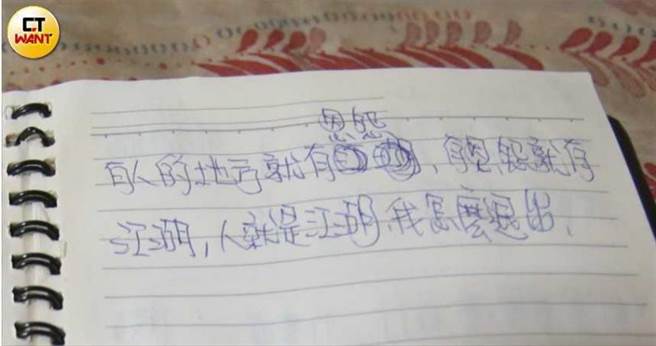 CT
WANT
恩怨
有人的地方就有，有恩怨就有
江湖，人就是江湖，我怎麼退出.